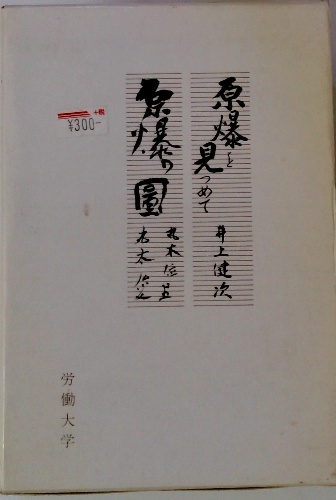 原爆を見つめて
井上健次
原爆の圖
丸木位里
赤松俊子
労働大学
+税
¥300-